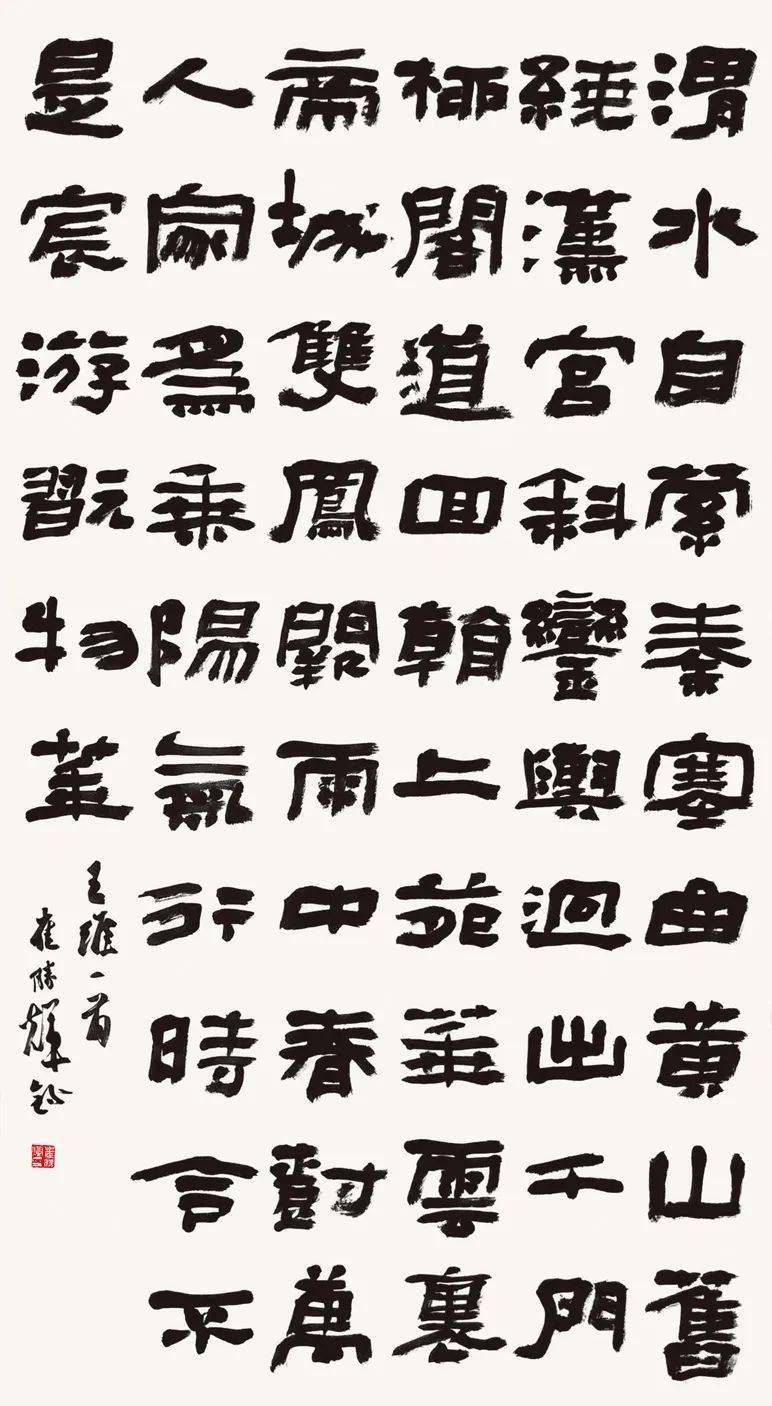 渭水自縈秦塞曲黃山舊
繞漢宮斜鑾輿迥出千門
柳閣道回朝上苑華雲裏
帝城雙鳳闕雨中春樹萬
人家爲乘陽氣行時令不
是宸游翫物華
王維一首
崔勝輝